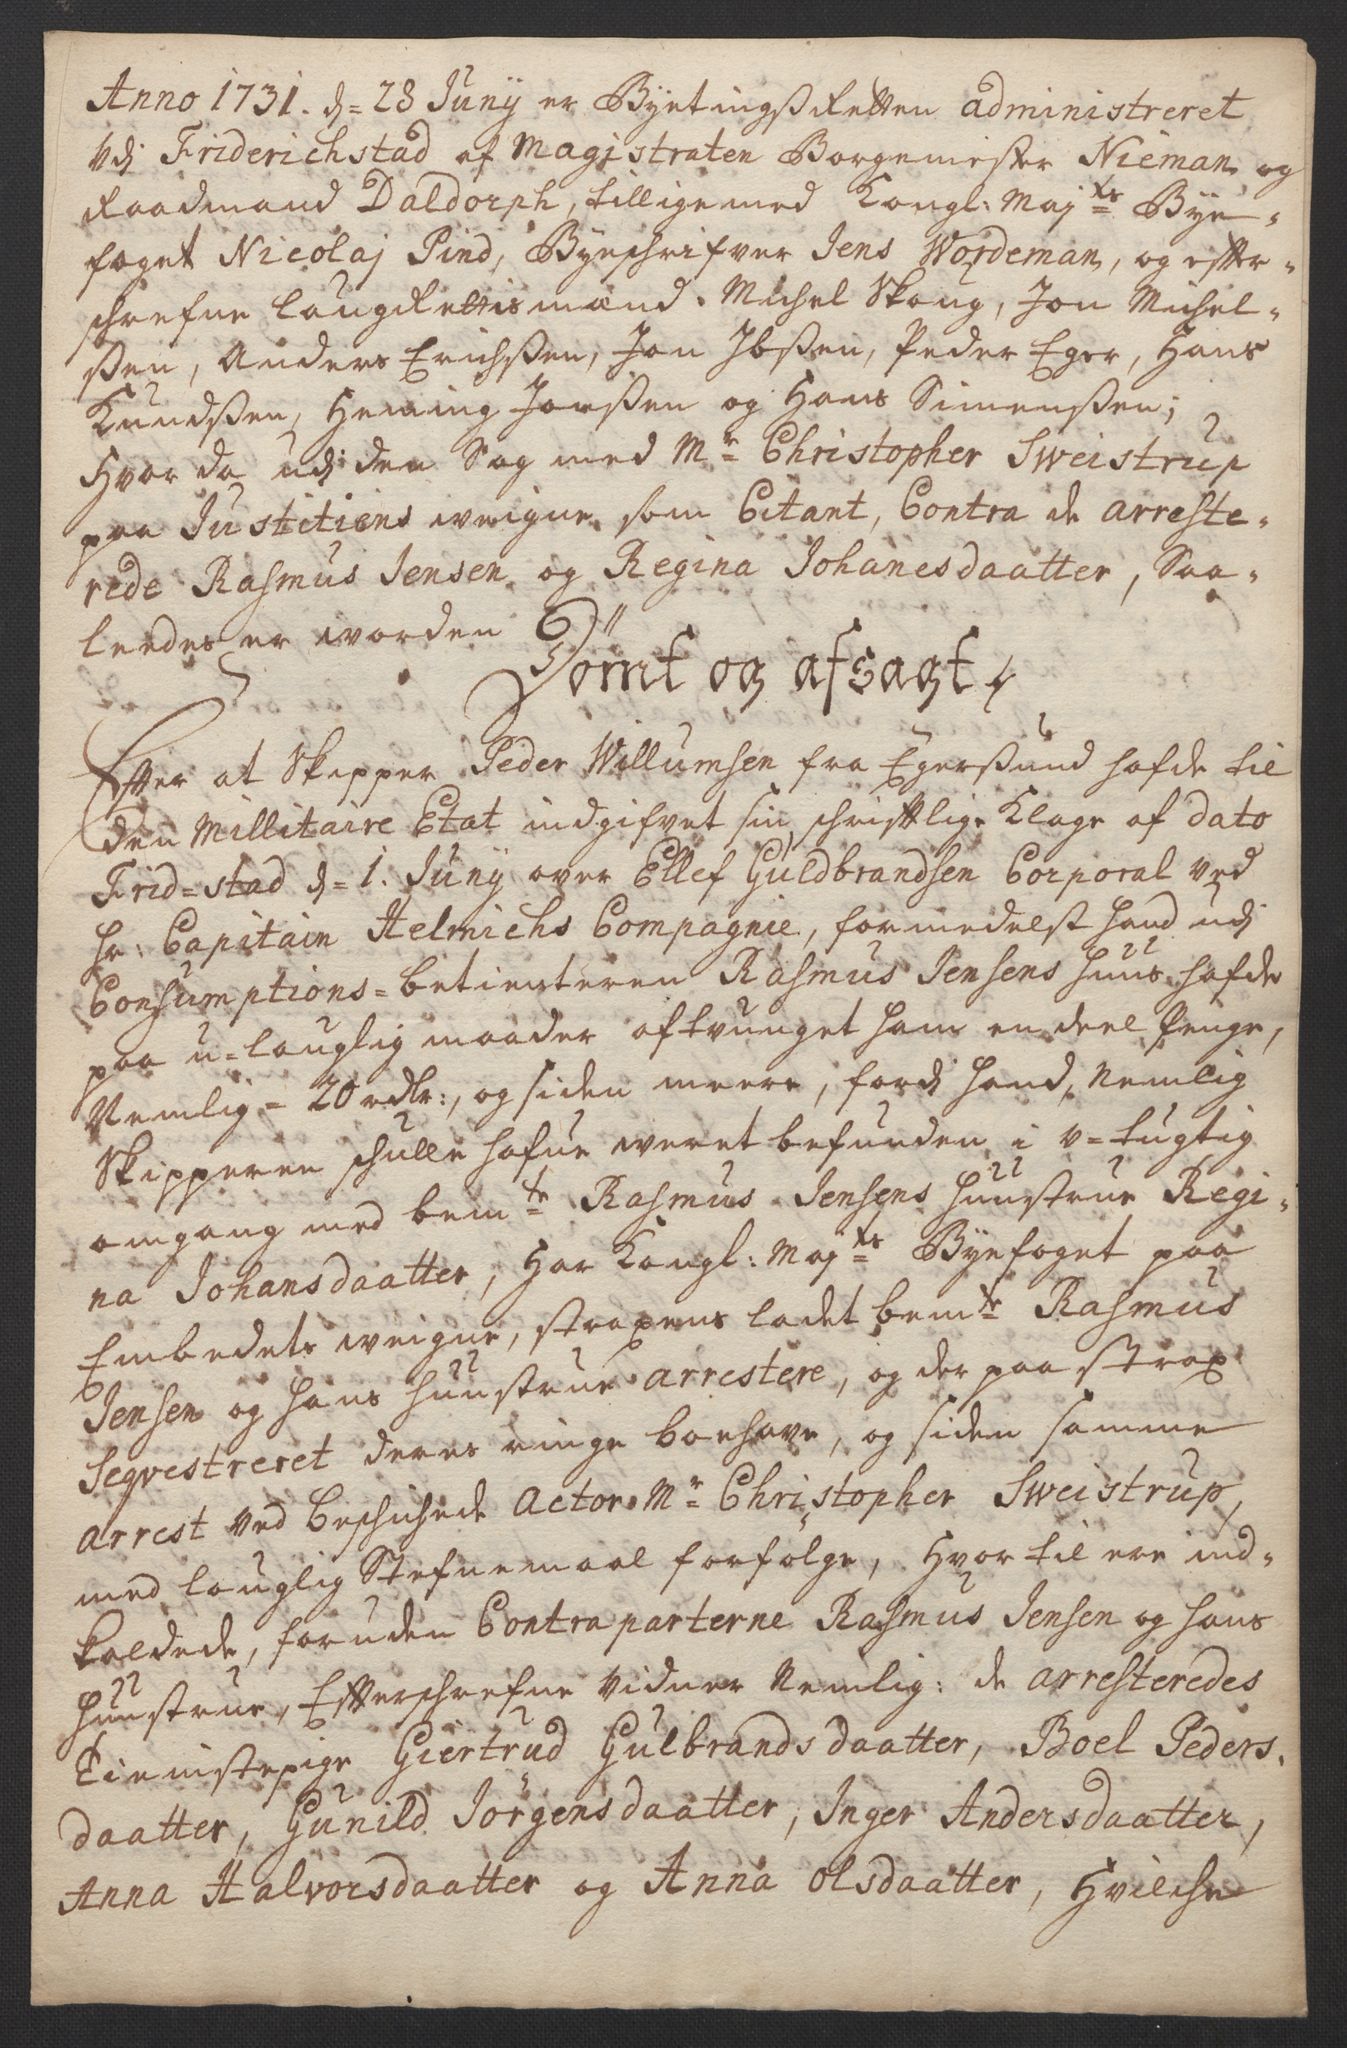 Anno 1731. d= 28 Junÿ er Byetingsretten administreret
udj Friderichstad af Magistraten Borgemester Nieman og
Raadmand Daldorph, tilligemed Kongl: Maj:ts Bÿe-
foget Nicolaj Pind, Bÿeschrifver Jens Wordeman, og effter-
schrefne Laugrettismænd. Michel Skoug, Jon Michel-
ßen, Anders Erichßen, Jon Jbßen, Peder Eger, Hans
Knudßen, Heming Jonßen og Hans Simenßen;
Hvor da udj den Sag med Mr Christopher Sweistrup
paa Justitiens weigne som Citant, Contra de arreste-
rede Rasmus Jensen og Regina Johanesdaatter, Saa-
leedes er worden
Dömt og afsagt
Effter at Skipper Peder Willumsen fra Egerßund hafde til
den Millitaire Etat indgifvet sin schrifftlige Klage af dato
Frid=stad d= 1. Junÿ over Ellef Guldbrandsen Corporal ved
Hr: Capitain Helmichs Compagnie, formedelst hand udj
Consumptions=betienteren Rasmus Jensens Huus hafde
paa u=lauglig maader aftvunget ham en deel Penge,
Nemlig = 20 rdlr:, og siden meere, fordj hand, Nemlig
Skipperen schulle hafue weret befunden i u=tugtig
omgang med bemte Rasmus Jensens Huustrue Regi-
na Johansdaatter, Har Kongl: Maj:ts Bÿefoget paa
Embedets weigne, straxens ladet bemte Rasmus
Jensen og hans Huustrue arrestere, og der paa strax
Seqvestreret deres ringe boehave, og siden samme
arrest ved beschichede Actor Mr Christopher Sweistrup,
med lauglig Stefnemaal forfölge, Hvor til ere ind-
kaldede, foruden Contraparterne Rasmus Jensen og hans
Huustrue, Effterschrefne Vidner Nemlig: de arresteredes
Tienistepige Giertrud Gulbrandsdaatter, Boel Peders-
daatter, Gunild Jörgensdaatter, Inger Andersdaatter,
Anna Halvorsdaatter og Anna Olsdaatter, Hvilche